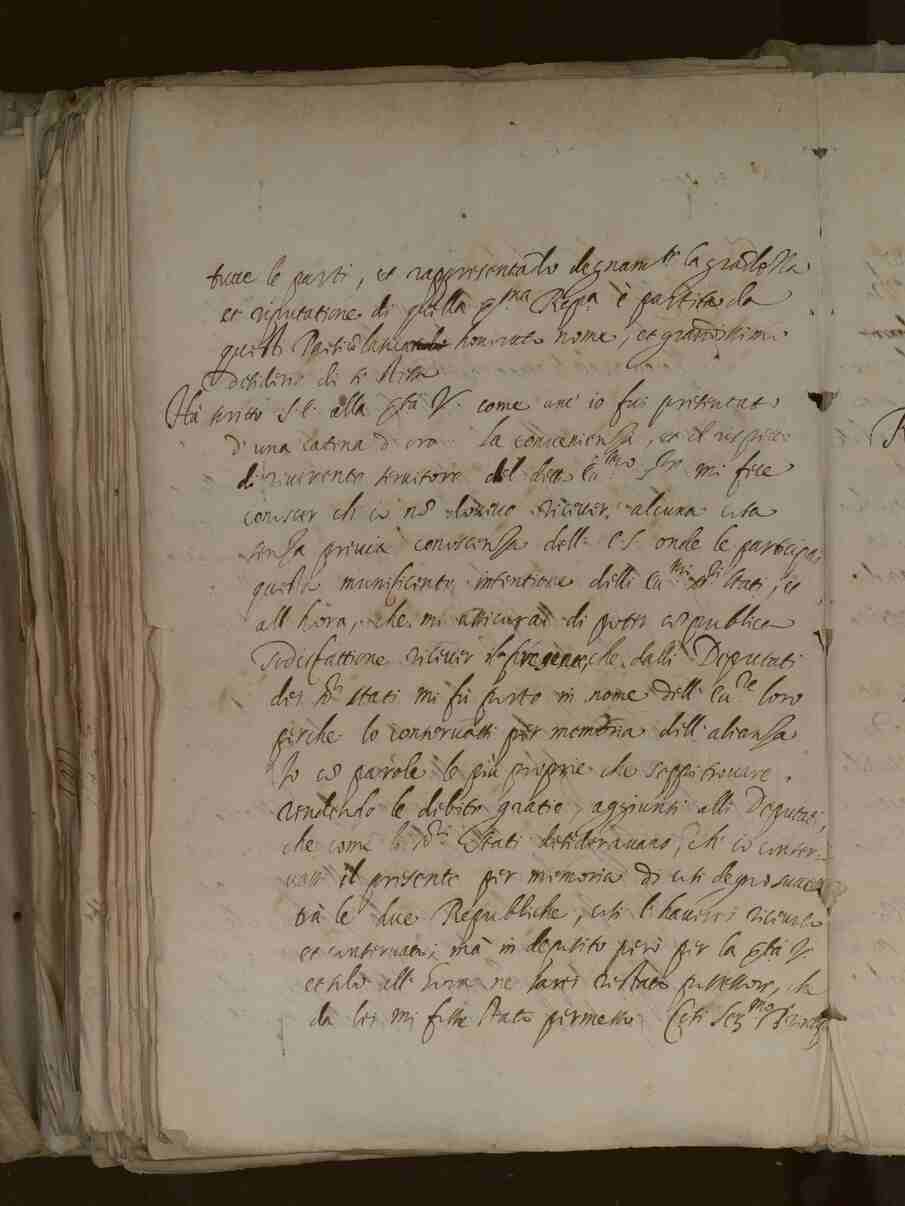 tutte le parti, et rappresentando degnam.te la grandezza
et riputatione di quella Ser.ma Rep.a è partita da
questi honorato nome, et grandissimo
desiderio di se stessa
Hà scritto S. E. alla Ser.tà V. come anc' io fui presentato
d' una catena d' oro. la convenienza, et il rispetto
di riverente servitore del detto Ecc.mo Sr. mi fece
conoscer ch' io nõ dovevo ricever alcuna cosa
senza previa conoscenza dell' E. S. onde le participai
questa munificente intentione delli Ecc.mi Sri. Stati, et
all' hora, che mi assicurai di poter cõ publica
sodisfattione ricever il presente, che dalli Deputati
dei Sri. stati mi fù porto in nome dell' Ecc.ze loro
perche lo conservassi per memoria dell' alianza
Io cõ parole le più proprie che seppi trovare
rendendo le debite gratie, aggiunsi alli Deputati,
che come li Sri. Stati desideravano, ch' io conser-
vassi il presente per memoria di cosi degno successo
trà le due Republiche, cosi l' haverei ricevuto
et conservato; mà in deposito però per la Ser.tà V.
et solo all' hora ne sarei restato possessore, che
da lei mi fosse stato permesso. Cosi Ser.mo Principe